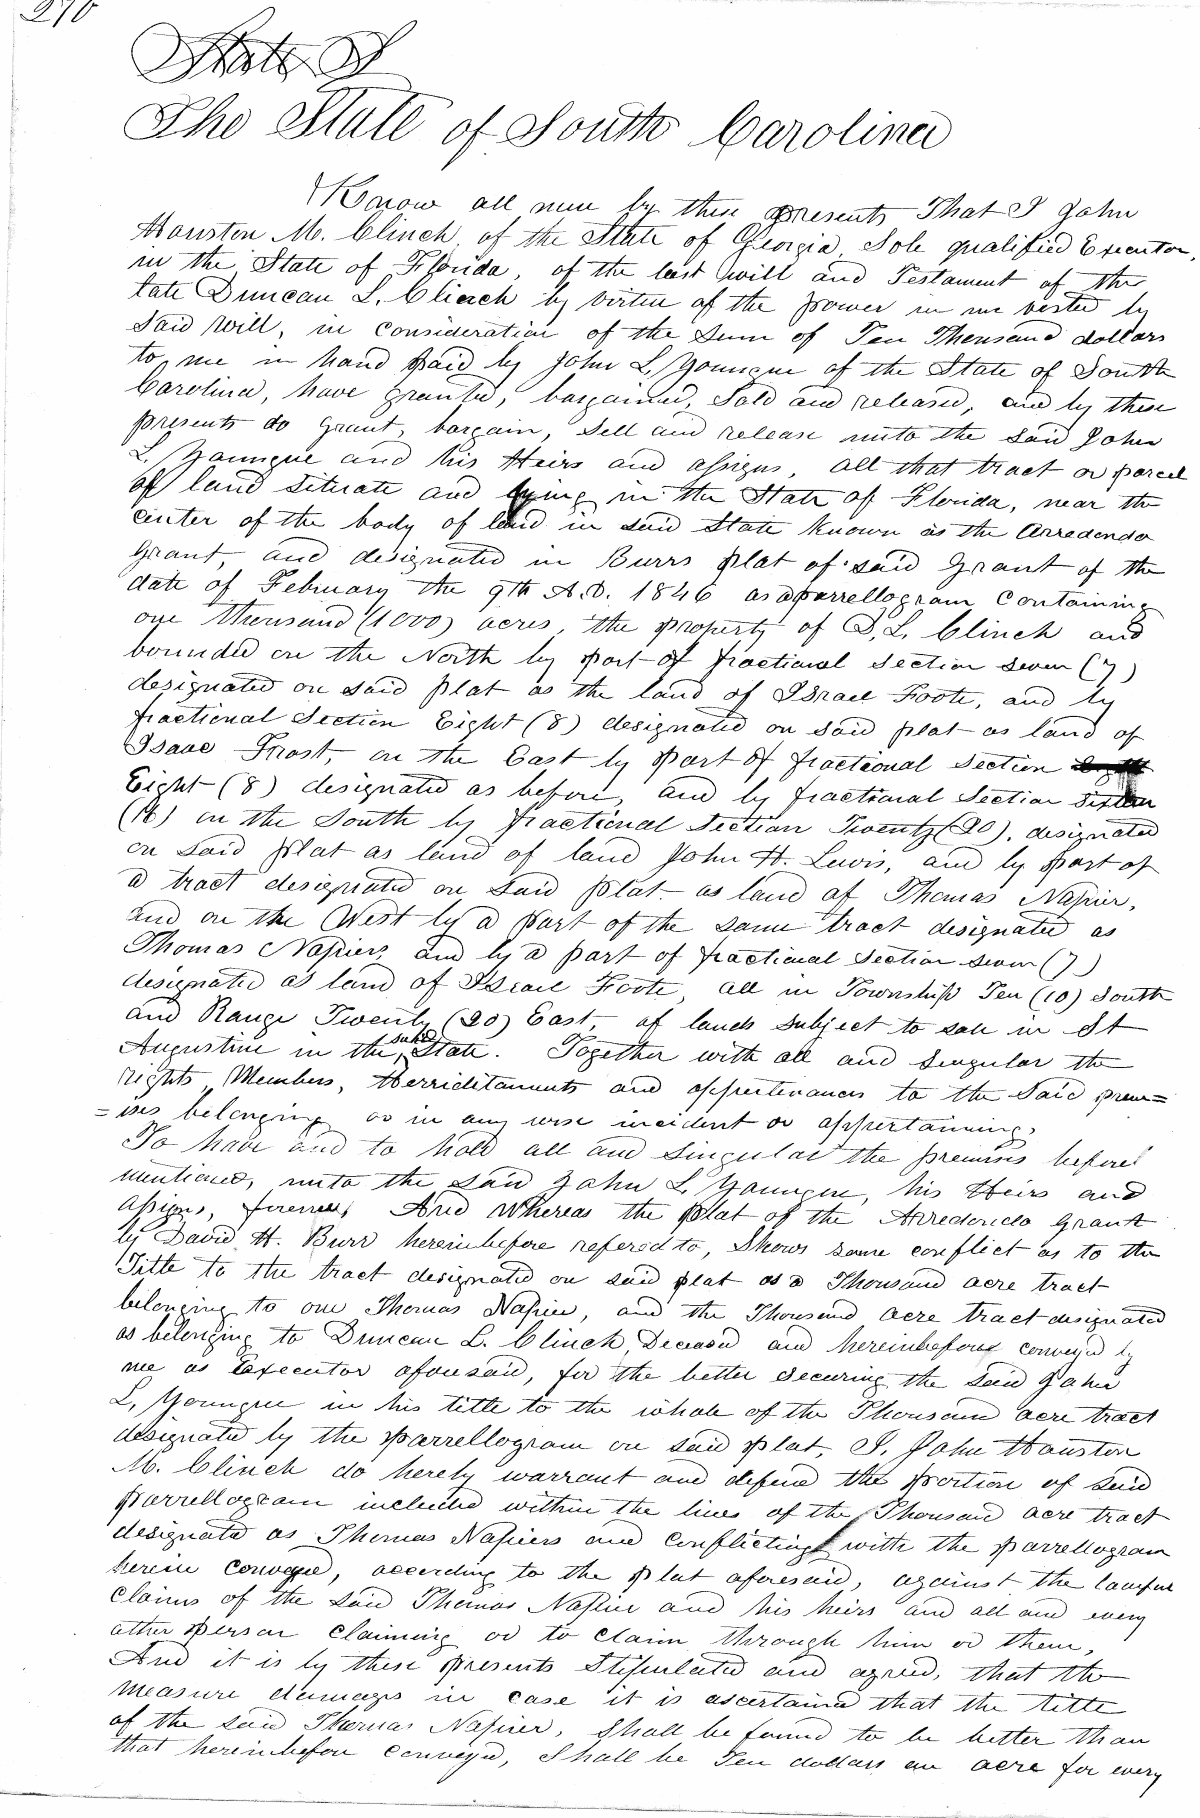 270
State of
The State of South Carolina
Know all men by these presents That I John
Houston M. Clinch, of the State of Georgia, Sole qualified Executor,
in the State of Florida, of the last will and Testament of the
late Duncan L. Clinch by virtue of the power in me vested by
said will, in consideration of the sum of Ten Thousand dollars
to me in hand paid by John L. Youngue of the State of South
Carolina, have granted, bargained, Sold and released, and by these
presents do grant, bargain, sell and release unto the said John
L. Youngue and his Heirs and assigns, all that tract or parcel
of land situate and lying in the State of Florida, near the
center of the body of land in said State known as the Arredondo
Grant, and designated in Burrs plat of said Grant of the
date of February the 9th A.D. 1846 as a parrellogram Containing
one thousand (1000) acres, the property of D. L. Clinch and
bounded on the North by part of fractional section seven (7)
designated on said plat as the land of Israel Foote, and by
fractional Section Eight (8) designated on said plat as land of
Isaac Frost, on the East by part of fractional section
Eight (8) designated as before, and by fractional Section sixteen
(16) on the South by fractional section Twenty (20), designated
on said plat as land of land John H. Lewis, and by part of
a tract designated on said plat as land of Thomas Napier,
and on the West by a part of the same tract designated as
Thomas Napiers, and by a part of fractional section seven (7)
designated as land of Israel Foote, all in Township Ten (10) South
and Range Twenty (20) East, of lands subject to sale in St
Augustine in the said State. Together with all and singular the
rights, Members, Herriditaments and appertenances to the said prem=
=ises belonging or in any wise incident or appertaining.
To have and to hold all and singular the premises before
mentioned, unto the said John L. Youngue, his Heirs and
assigns, forever, And Whereas the plat of the Arredondo Grant
by David H. Burr hereinbefore refered to, Shows some conflict as to the
Title to the tract designated on said plat as a Thousand acre tract
belonging to one Thomas Napier, and the Thousand acre tract designated
as belonging to Duncan L. Clinch, Deceased and hereinbefore conveyed by
me as Executor aforesaid, for the better securing the said John
L. Youngue in his title to the whole of the Thousand acre tract
designated by the parrellogram on said plat, I, John Houston
M. Clinch do hereby warrant and defend the portion of said
parrellogram included within the lines of the Thousand acre tract
designated as Thomas Napiers and Conflicting with the parrellogram
herein conveyed, according to the plat aforesaid, against the lawful
claims of the said Thomas Napier and his heirs and all and every
other person claiming or to claim through him or them,
And it is by these presents Stipulated and agreed, that the
measure damages in case it is ascertained that the title
of the said Thomas Napier, shall be found to be better than
that hereinbefore conveyed, Shall be Ten dollars an acre for every